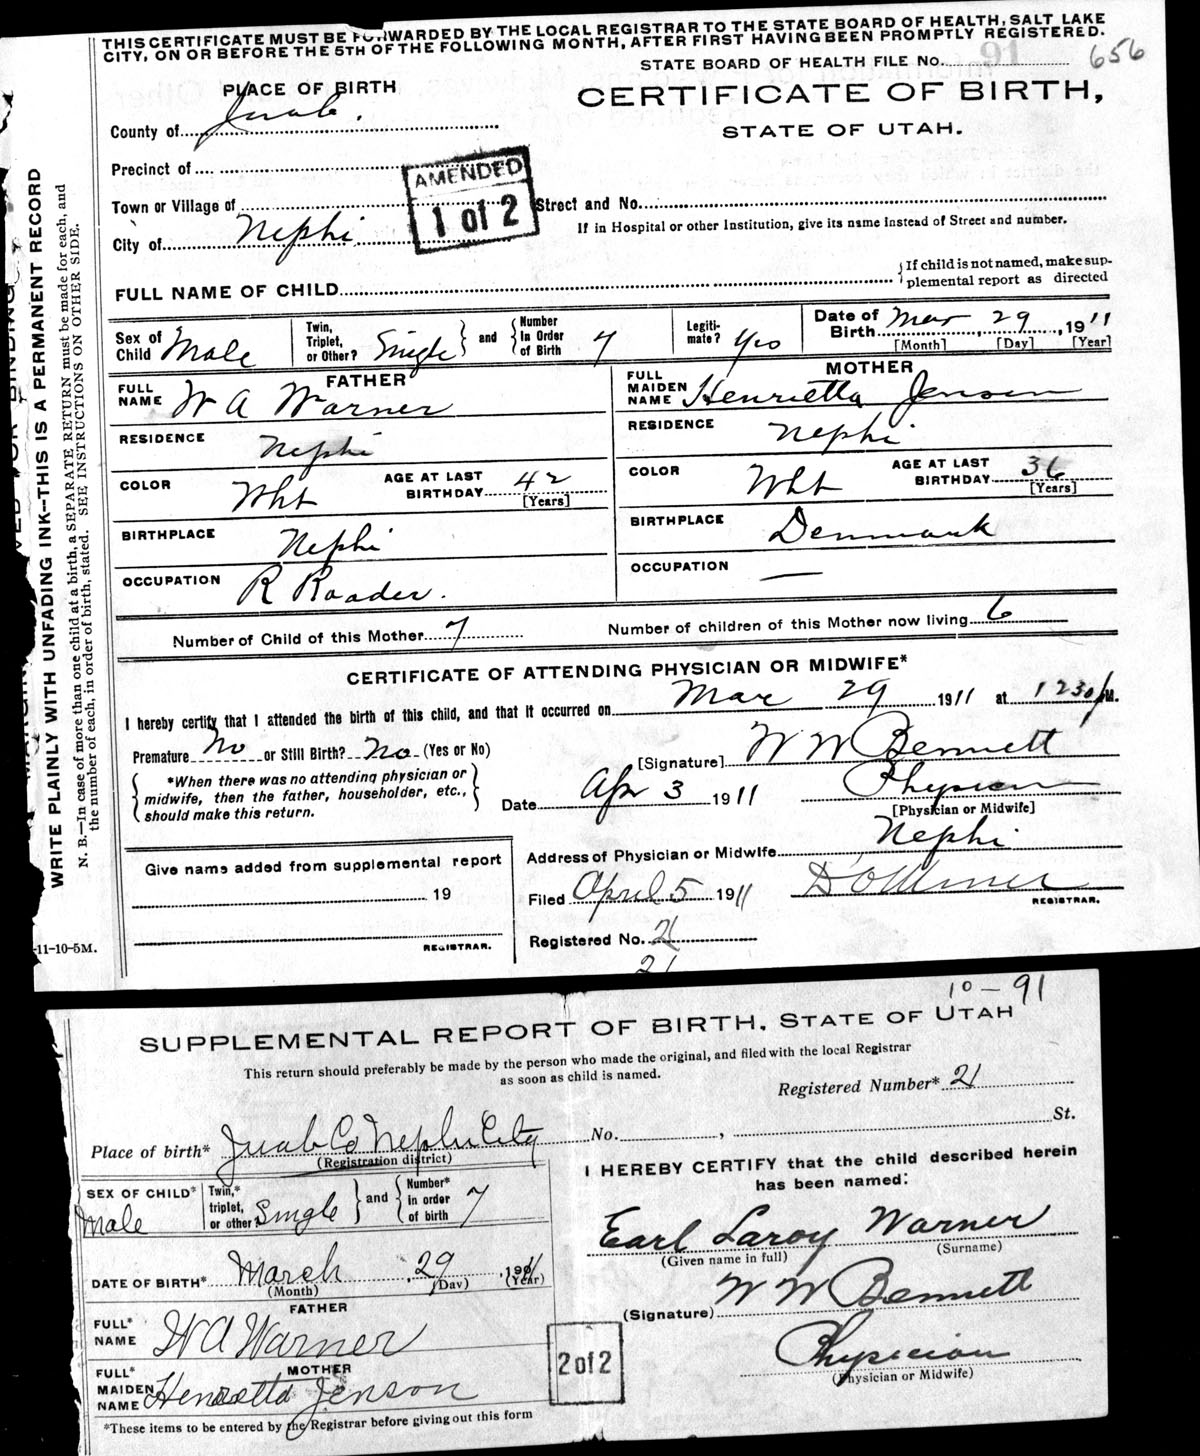 THIS CERTIFICATE MUST BE FORWARDED BY THE LOCAL REGISTRAR TO THE STATE BOARD OF HEALTH, SALT LAKE
CITY, ON OR BEFORE THE 5TH OF THE FOLLOWING MONTH, AFTER FIRST HAVING BEEN PROMPTLY REGISTERED.
STATE BOARD OF HEALTH FILE No. 91 656
PLACE OF BIRTH
CERTIFICATE OF BIRTH,
STATE OF UTAH.
County of Juab.
Precinct of
AMENDED
1 of 2
Town or Village of
Street and No.
City of Nephi
If in Hospital or other Institution, give its name instead of Street and number.
FULL NAME OF CHILD
If child is not named, make sup-
plemental report as directed
Sex of Child Male
Twin, Triplet, or Other? Single and Number in Order of Birth 7
Legiti-mate? Yes
Date of Birth Mar 29, 1911
[Month] [Day] [Year]
FATHER
MOTHER
FULL NAME W A Warner
FULL MAIDEN NAME Henrietta Jenson
RESIDENCE Nephi
RESIDENCE Nephi
COLOR Wht AGE AT LAST BIRTHDAY 42 [Years]
COLOR Wht AGE AT LAST BIRTHDAY 36 [Years]
BIRTHPLACE Nephi
BIRTHPLACE Denmark
OCCUPATION R Roader.
OCCUPATION —
Number of Child of this Mother 7
Number of children of this Mother now living 6
CERTIFICATE OF ATTENDING PHYSICIAN OR MIDWIFE*
I hereby certify that I attended the birth of this child, and that it occurred on Mar 29 1911 at 1230 P M.
Premature No or Still Birth? No (Yes or No)
[Signature] W W Bennett
*When there was no attending physician or
midwife, then the father, householder, etc.,
should make this return.
Date Apr 3 1911
Physician
[Physician or Midwife]
Address of Physician or Midwife Nephi
Give name added from supplemental report
19
REGISTRAR.
Filed April 5 1911
REGISTRAR.
Registered No. 21
21
-11-10-5M.
WRITE PLAINLY WITH UNFADING INK—THIS IS A PERMANENT RECORD
N. B.—In case of more than one child at a birth, a SEPARATE RETURN must be made for each, and
the number of each, in order of birth, stated. SEE INSTRUCTIONS ON OTHER SIDE.
10-91
SUPPLEMENTAL REPORT OF BIRTH, STATE OF UTAH
This return should preferably be made by the person who made the original, and filed with the local Registrar
as soon as child is named.
Registered Number* 21
Place of birth* Juab Co Nephi City No. , St.
(Registration district)
I HEREBY CERTIFY that the child described herein
has been named:
SEX OF CHILD* Male
Twin,* triplet, or other? Single and Number* in order of birth 7
Earl Laroy Warner
(Given name in full) (Surname)
DATE OF BIRTH* March 29, 1911
(Month) (Day) (Year)
(Signature) W W Bennett
FATHER
FULL* NAME W A Warner
Physician
(Physician or Midwife)
2 of 2
MOTHER
FULL* MAIDEN NAME Henrietta Jenson
*These items to be entered by the Registrar before giving out this form